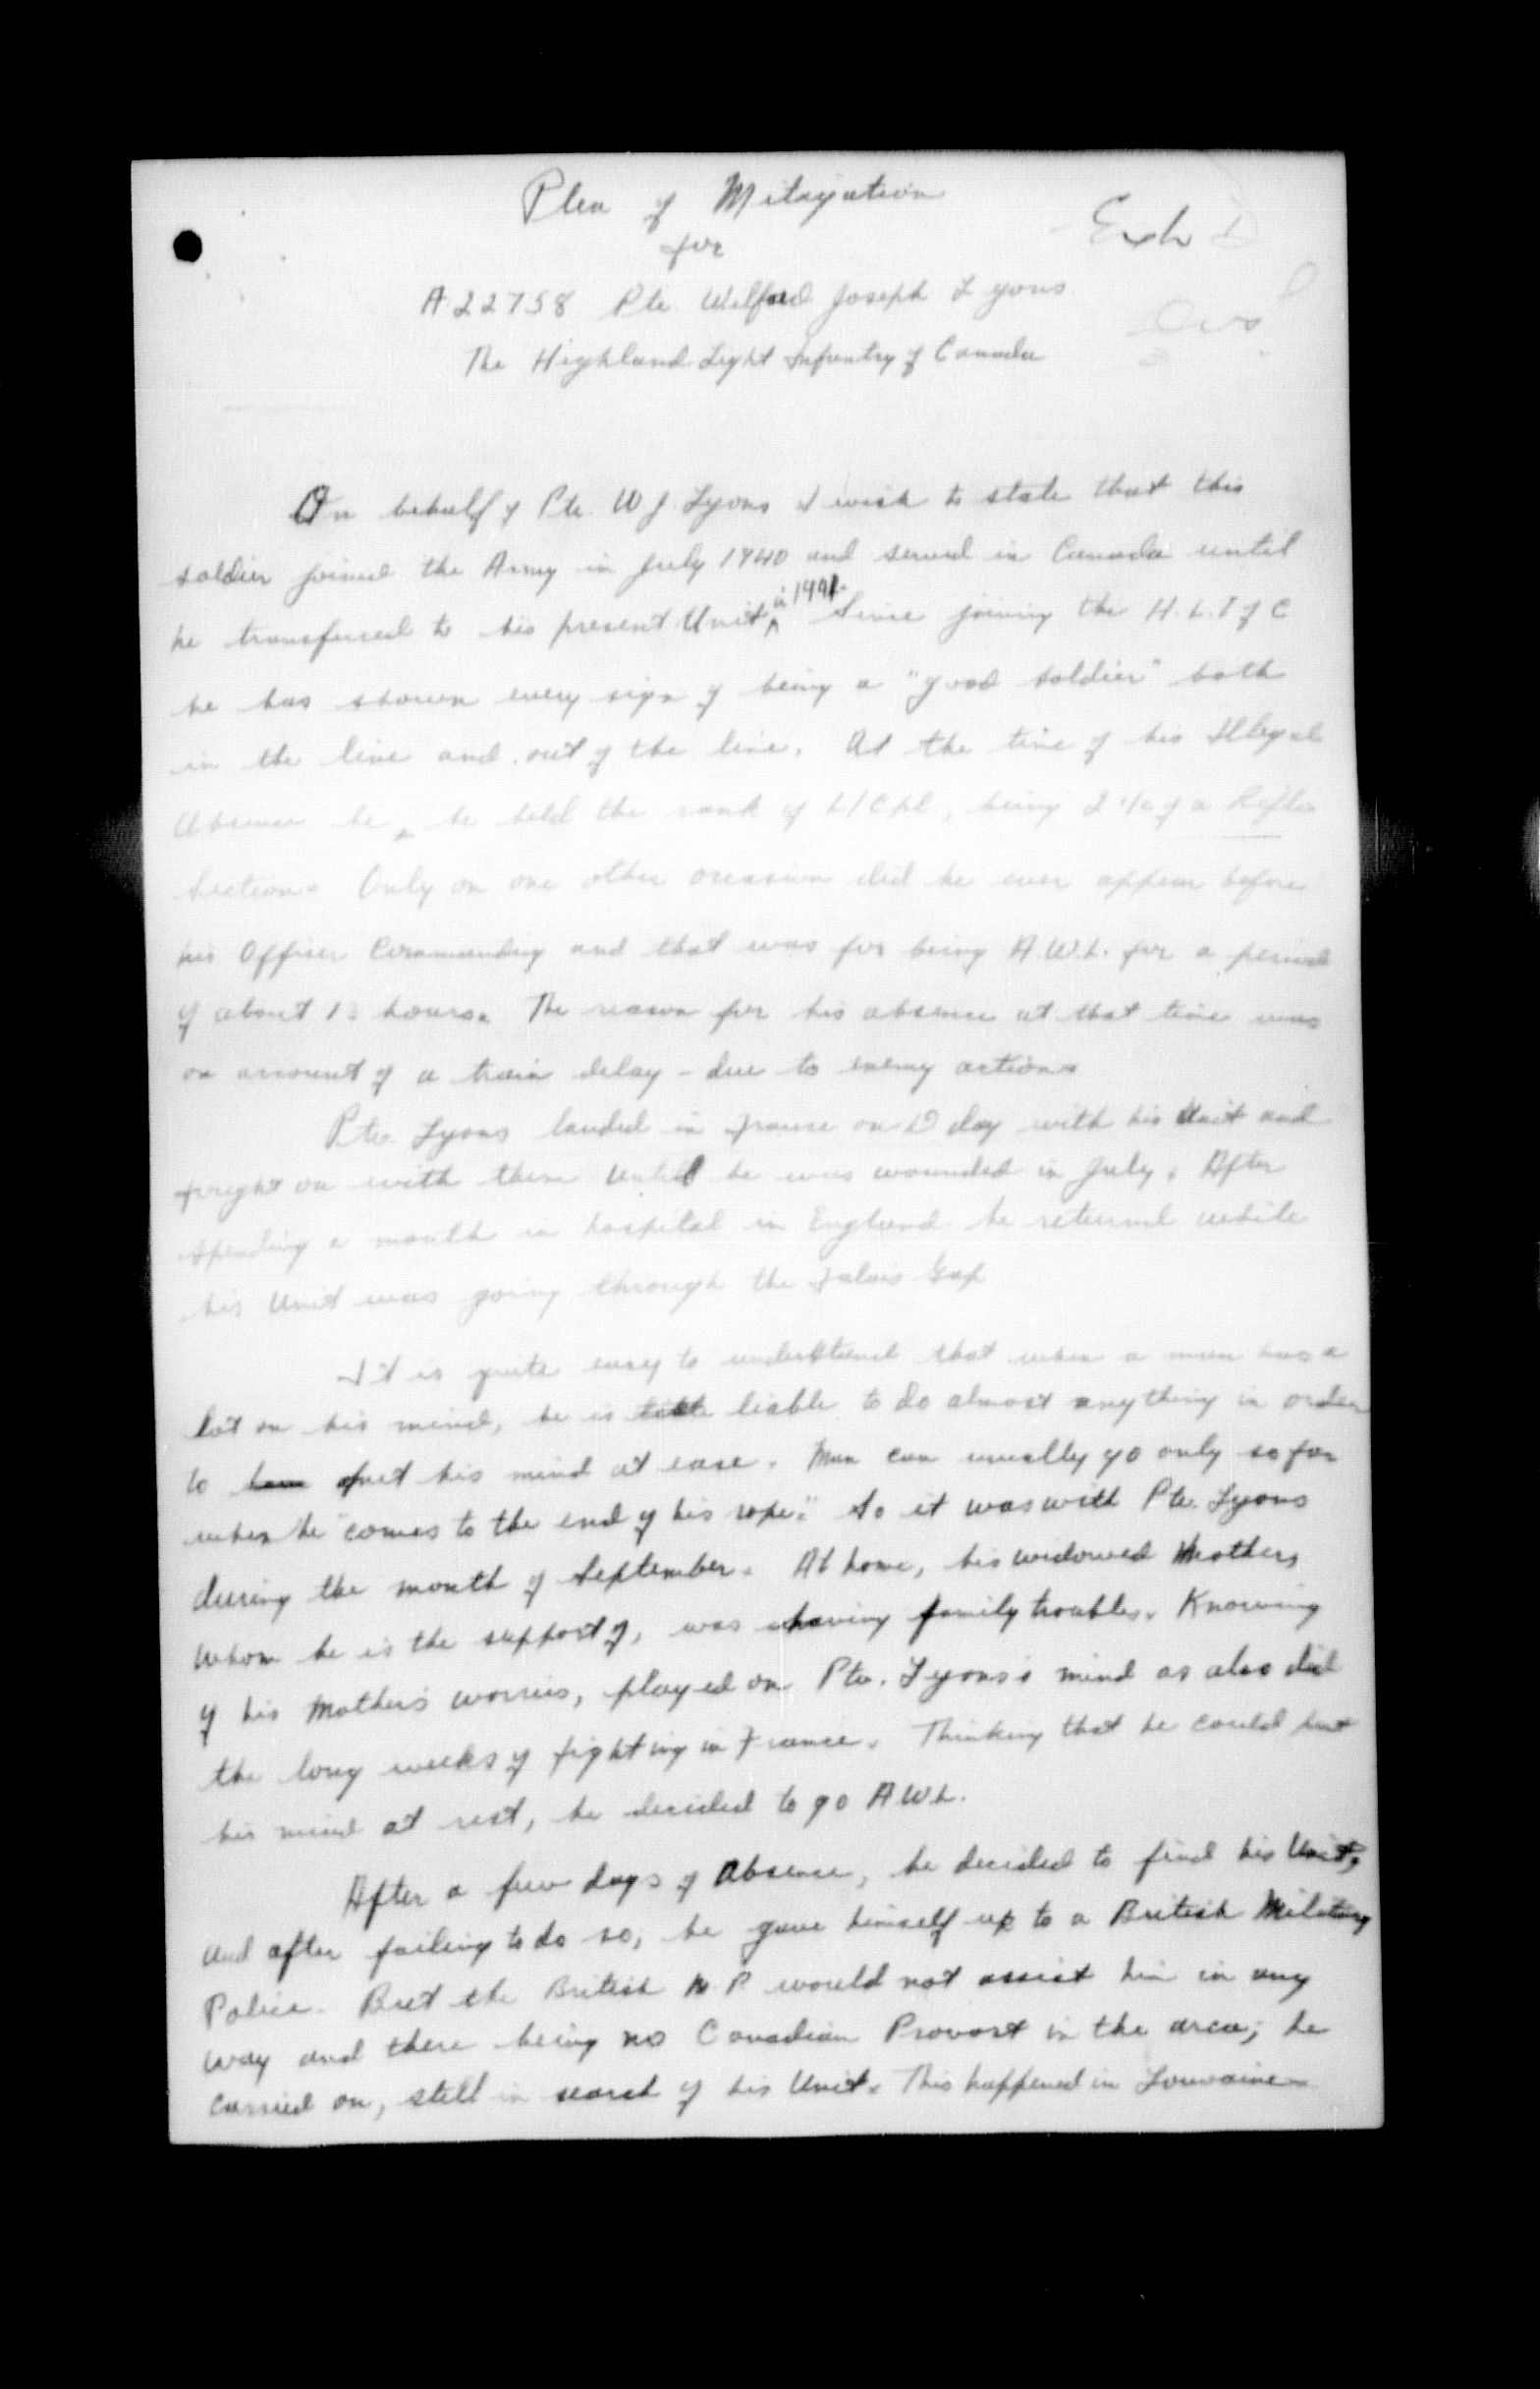 Plea of Mitagation
for
Exh D
A 22758 Pte. Wilford Joseph Lyons
The Highland Light Infantry of Canada
On behalf of Pte. W J. Lyons I wish to state that this
soldier joined the Army in July 1940 and served in Canada until
he transferred to his present Unit in 1941. Since joining the H. L. I of C
he has shown every sign of being a "good soldier" both
in the line and out of the line. At the time of his Illegal
Absence he he held the rank of L/Cpl, being 2 i/c of a Rifle
Section. Only on one other occasion did he ever appear before
his Officer Commanding and that was for being A.W.L. for a period
of about 13 hours. The reason for his absence at that time was
on account of a train delay - due to enemy action.
Pte. Lyons landed in France on D day with his Unit and
fought on with them until he was wounded in July. After
spending a month in hospital in England he returned while
his Unit was going through the Falais Gap
It is quite easy to understand that when a man has a
lot on his mind, he is liable to do almost anything in order
to put his mind at ease. Man can usually go only so far
when he "comes to the end of his rope." So it was with Pte. Lyons
during the month of September. At home, his widowed Mother,
whom he is the support of, was having family troubles. Knowing
of his Mother's worries, played on Pte. Lyons's mind as also did
the long weeks of fighting in France. Thinking that he could put
his mind at rest, he decided to go A W L.
After a few days of Absence, he decided to find his Unit,
and after failing to do so, he gave himself up to a British Military
Police. But the British M P would not assist him in any
way and there being no Canadian Provost in the area; he
carried on, still in search of his Unit. This happened in Louvaine